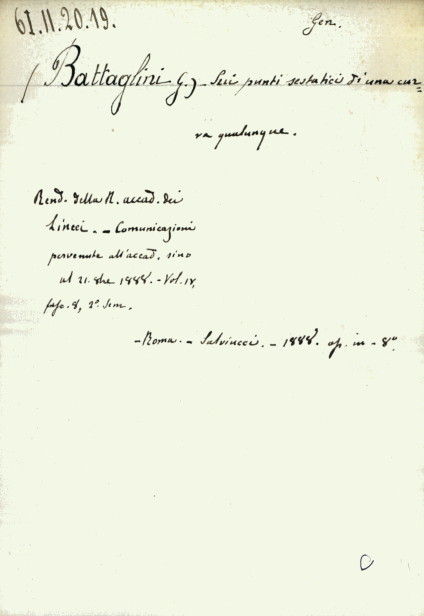 61.II.20.19.
Gen.
(Battaglini G.) - Sui punti sestatici di una cur=
va qualunque.
Rend. della R. accad. dei
Lincei. - Comunicazioni
pervenute all'accad. sino
al 21. 8bre 1888. - Vol. IV,
fasc. 8, 2º. Sem.
- Roma. - Salviucci. - 1888. op. in - 8º.